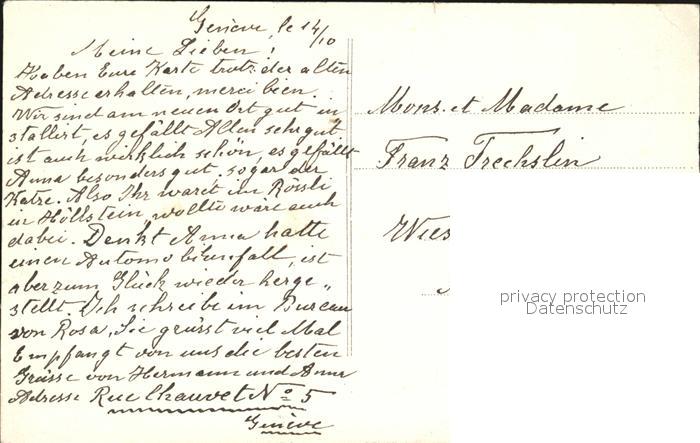 Genève, le 14/10
Meine Lieben!
Haben Eure Karte trotz der alten
Adresse erhalten, merci bien.
Wir sind am neuen Ort gut in
stalliert, es gefällt Allen sehr gut
ist auch wirklich schön, es gefällt
Anna besonders gut. sogar der
Katze. Also Ihr waret im Rössli
in Höllstein, wollte wäre auch
dabei. Denkt Anna hatte
einen Automobilunfall, ist
aber zum Glück wieder herge„
stellt. Ich schreibe im Bureau
von Rosa, Sie grüsst viel Mal
Empfangt von uns die besten
Grüsse von Hermann und Anna
Adresse Rue Chauvet No 5
Genève
Mons. et Madame
Franz Trechslin
privacy protection
Datenschutz